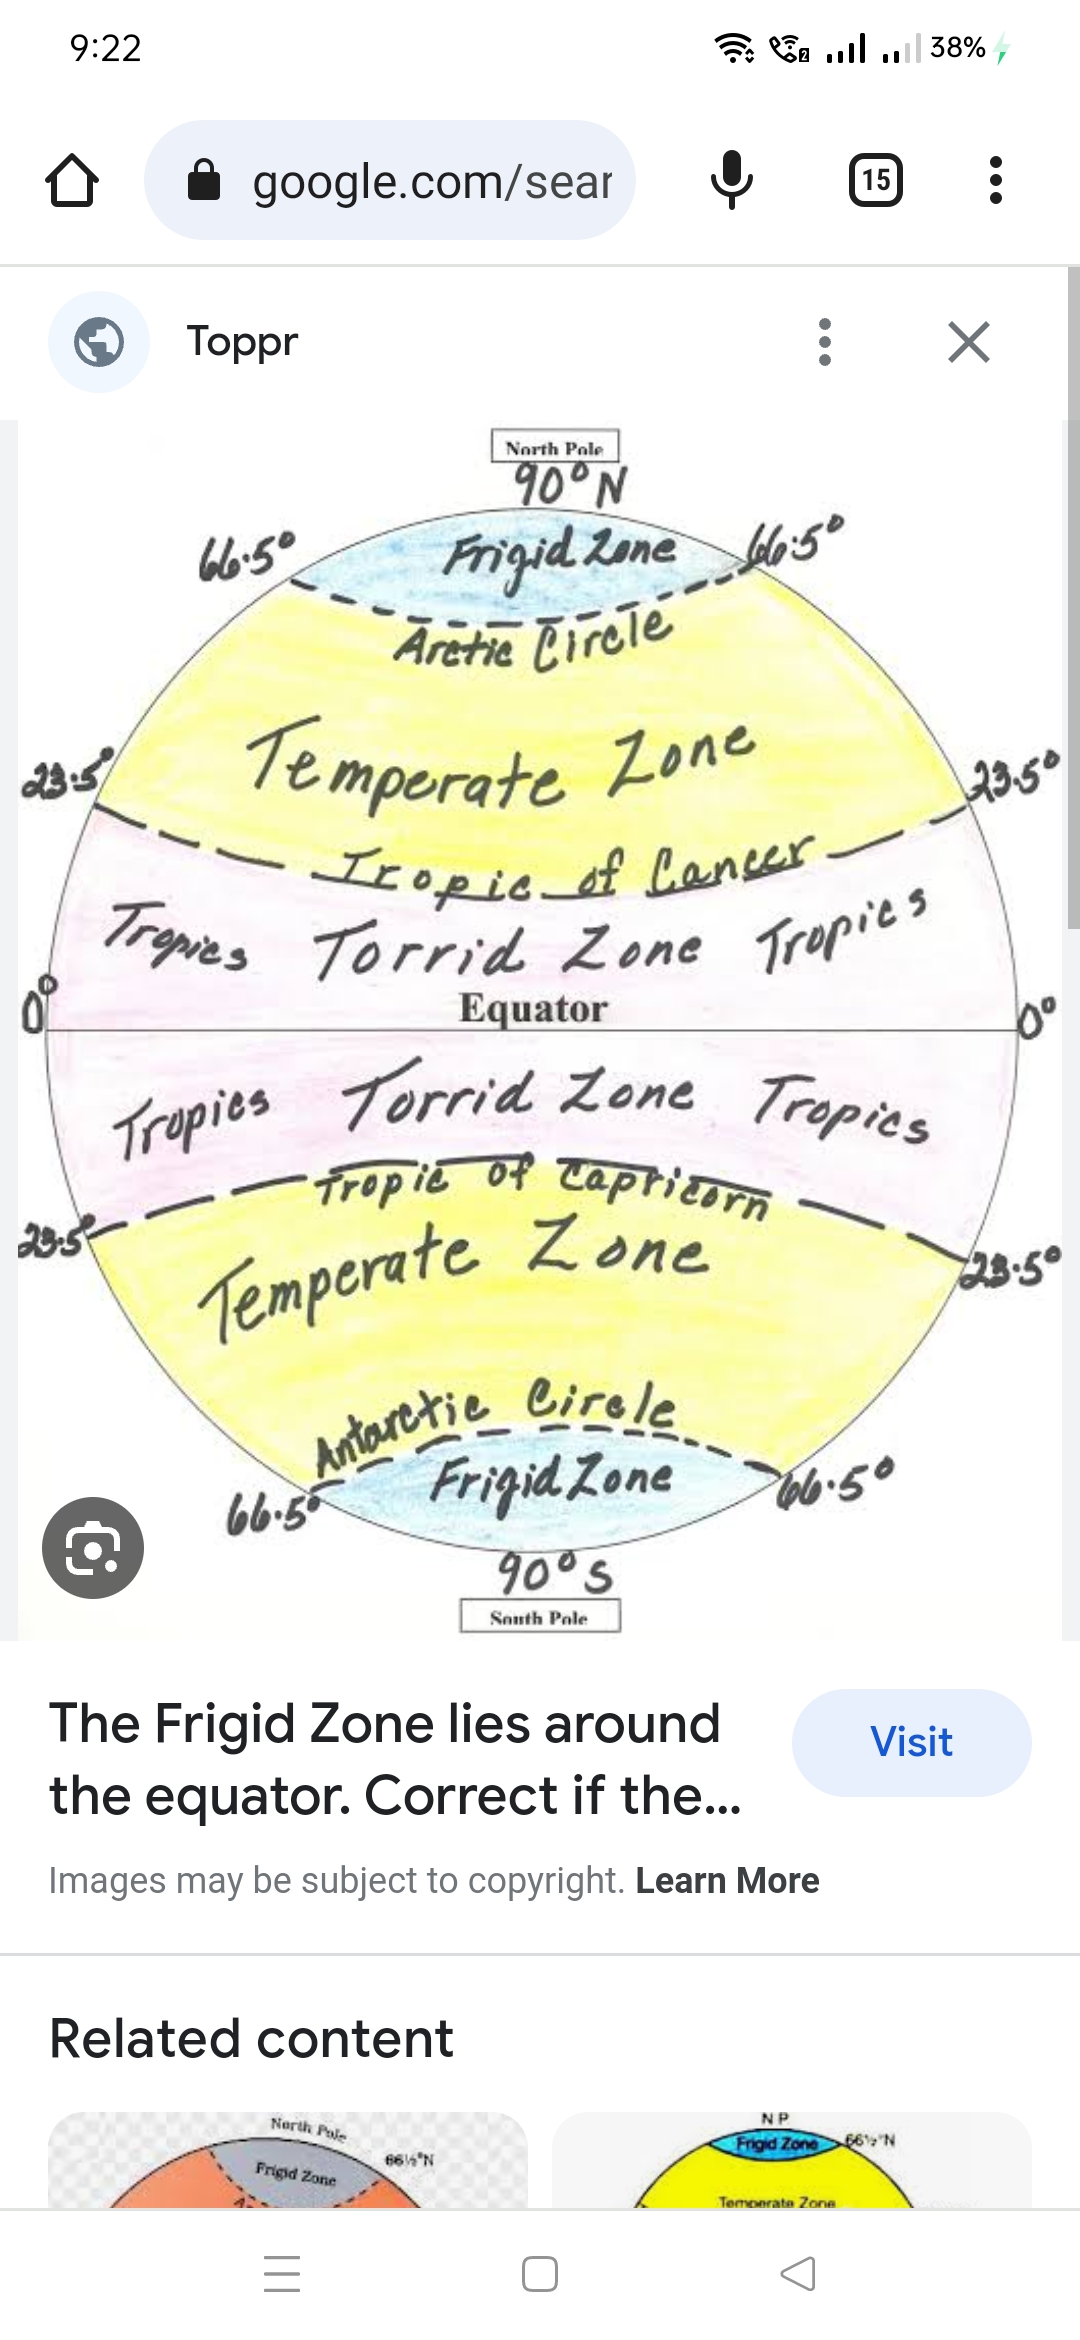 9:22
38%
google.com/sear
15
Toppr
North Pole
90° N
66.5° Frigid Zone 66.5°
Arctic Circle
Temperate Zone
23.5° 23.5°
Tropic of Cancer
Tropics Torrid Zone Tropics
0° Equator 0°
Tropics Torrid Zone Tropics
Tropic of Capricorn
23.5° 23.5°
Temperate Zone
Antarctic Circle
Frigid Zone
66.5° 66.5°
90° S
South Pole
The Frigid Zone lies around
the equator. Correct if the...
Visit
Images may be subject to copyright. Learn More
Related content
North Pole
66½°N
Frigid Zone
N P
Frigid Zone 66½°N
Temperate Zone